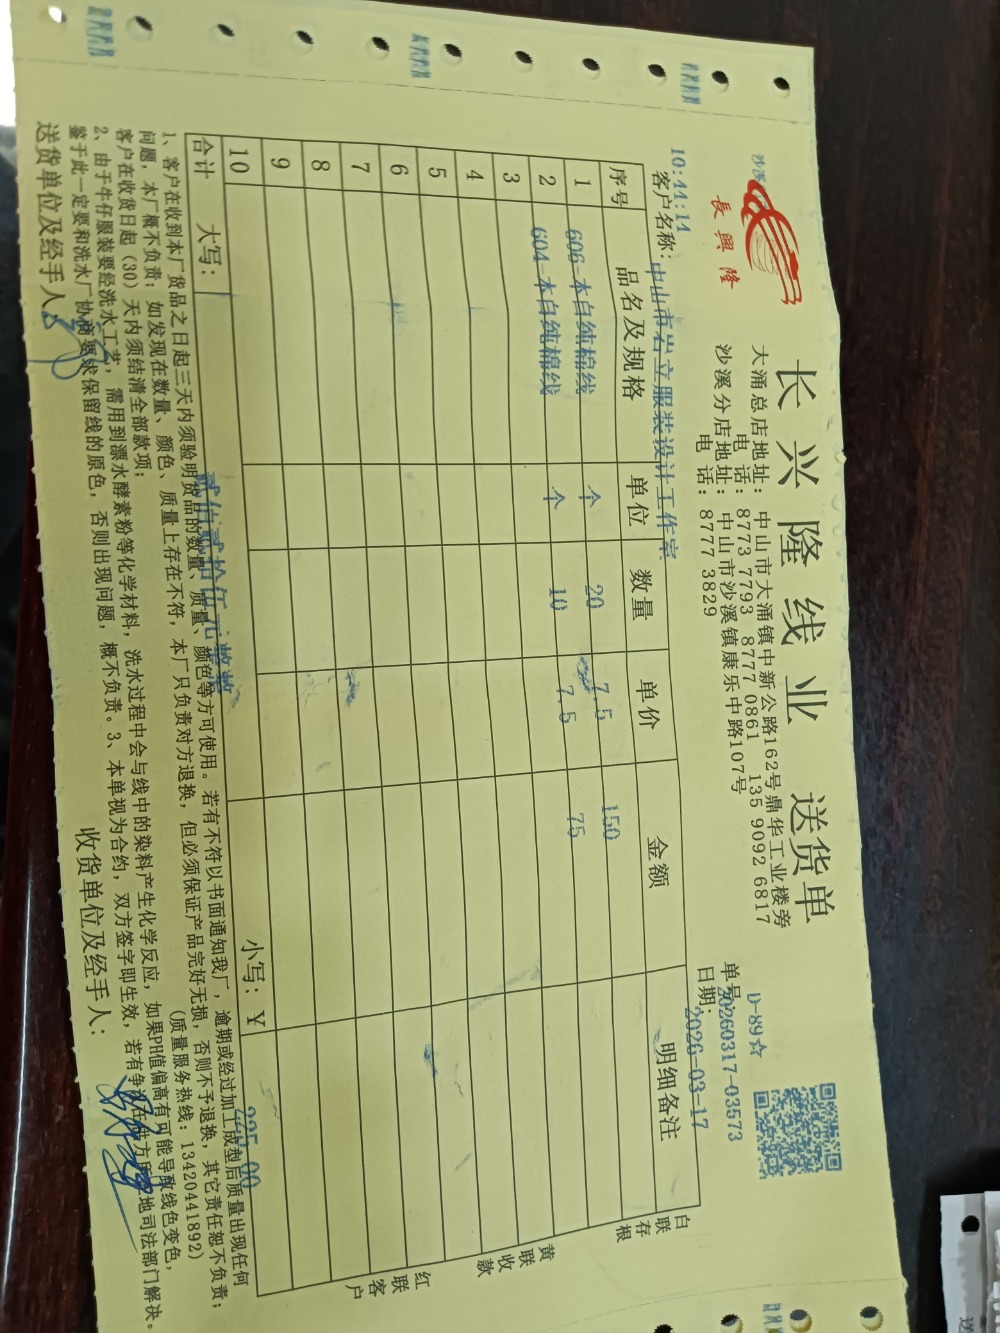 長興隆
长兴隆线业 送货单
大涌总店地址：中山市大涌镇中新公路162号鼎华工业楼旁
电 话：8773 7793 8777 0861 135 9092 6817
沙溪分店地址：中山市沙溪镇康乐中路107号
电 话：8777 3829
D-89☆
单号：20260317-03573
日期：2026-03-17
10:44:14
客户名称：中山市岩立服装设计工作室
序号 品名及规格 单位 数量 单价 金额 明细备注
1 606-本白纯棉线 个 20 7.5 150
2 604-本白纯棉线 个 10 7.5 75
3
4
5
6
7
8
9
10
合计 大写：贰佰贰拾伍元整 小写：￥225.00
白联存根
黄联收款
红联客户
1、客户在收到本厂货品之日起三天内须验明货品的数量、质量、颜色等方可使用。若有不符以书面通知我厂，逾期或经过加工成型后质量出现任何
问题，本厂概不负责；如发现在数量、颜色、质量上存在不符，本厂只负责对方退换，但必须保证产品完好无损，否则不予退换，其它责任恕不负责；
客户在收货日起（30）天内须结清全部款项； (质量服务热线：13420441892)
2、由于牛仔服装要经洗水工艺，需用到漂水酵素粉等化学材料，洗水过程中会与线中的染料产生化学反应，如果PH值偏高有可能导致线色变色，
鉴于此一定要和洗水厂协商要求保留线的原色，否则出现问题，概不负责。3、本单视为合约，双方签字即生效，若有争议在供方所在地司法部门解决。
送货单位及经手人： 收货单位及经手人：